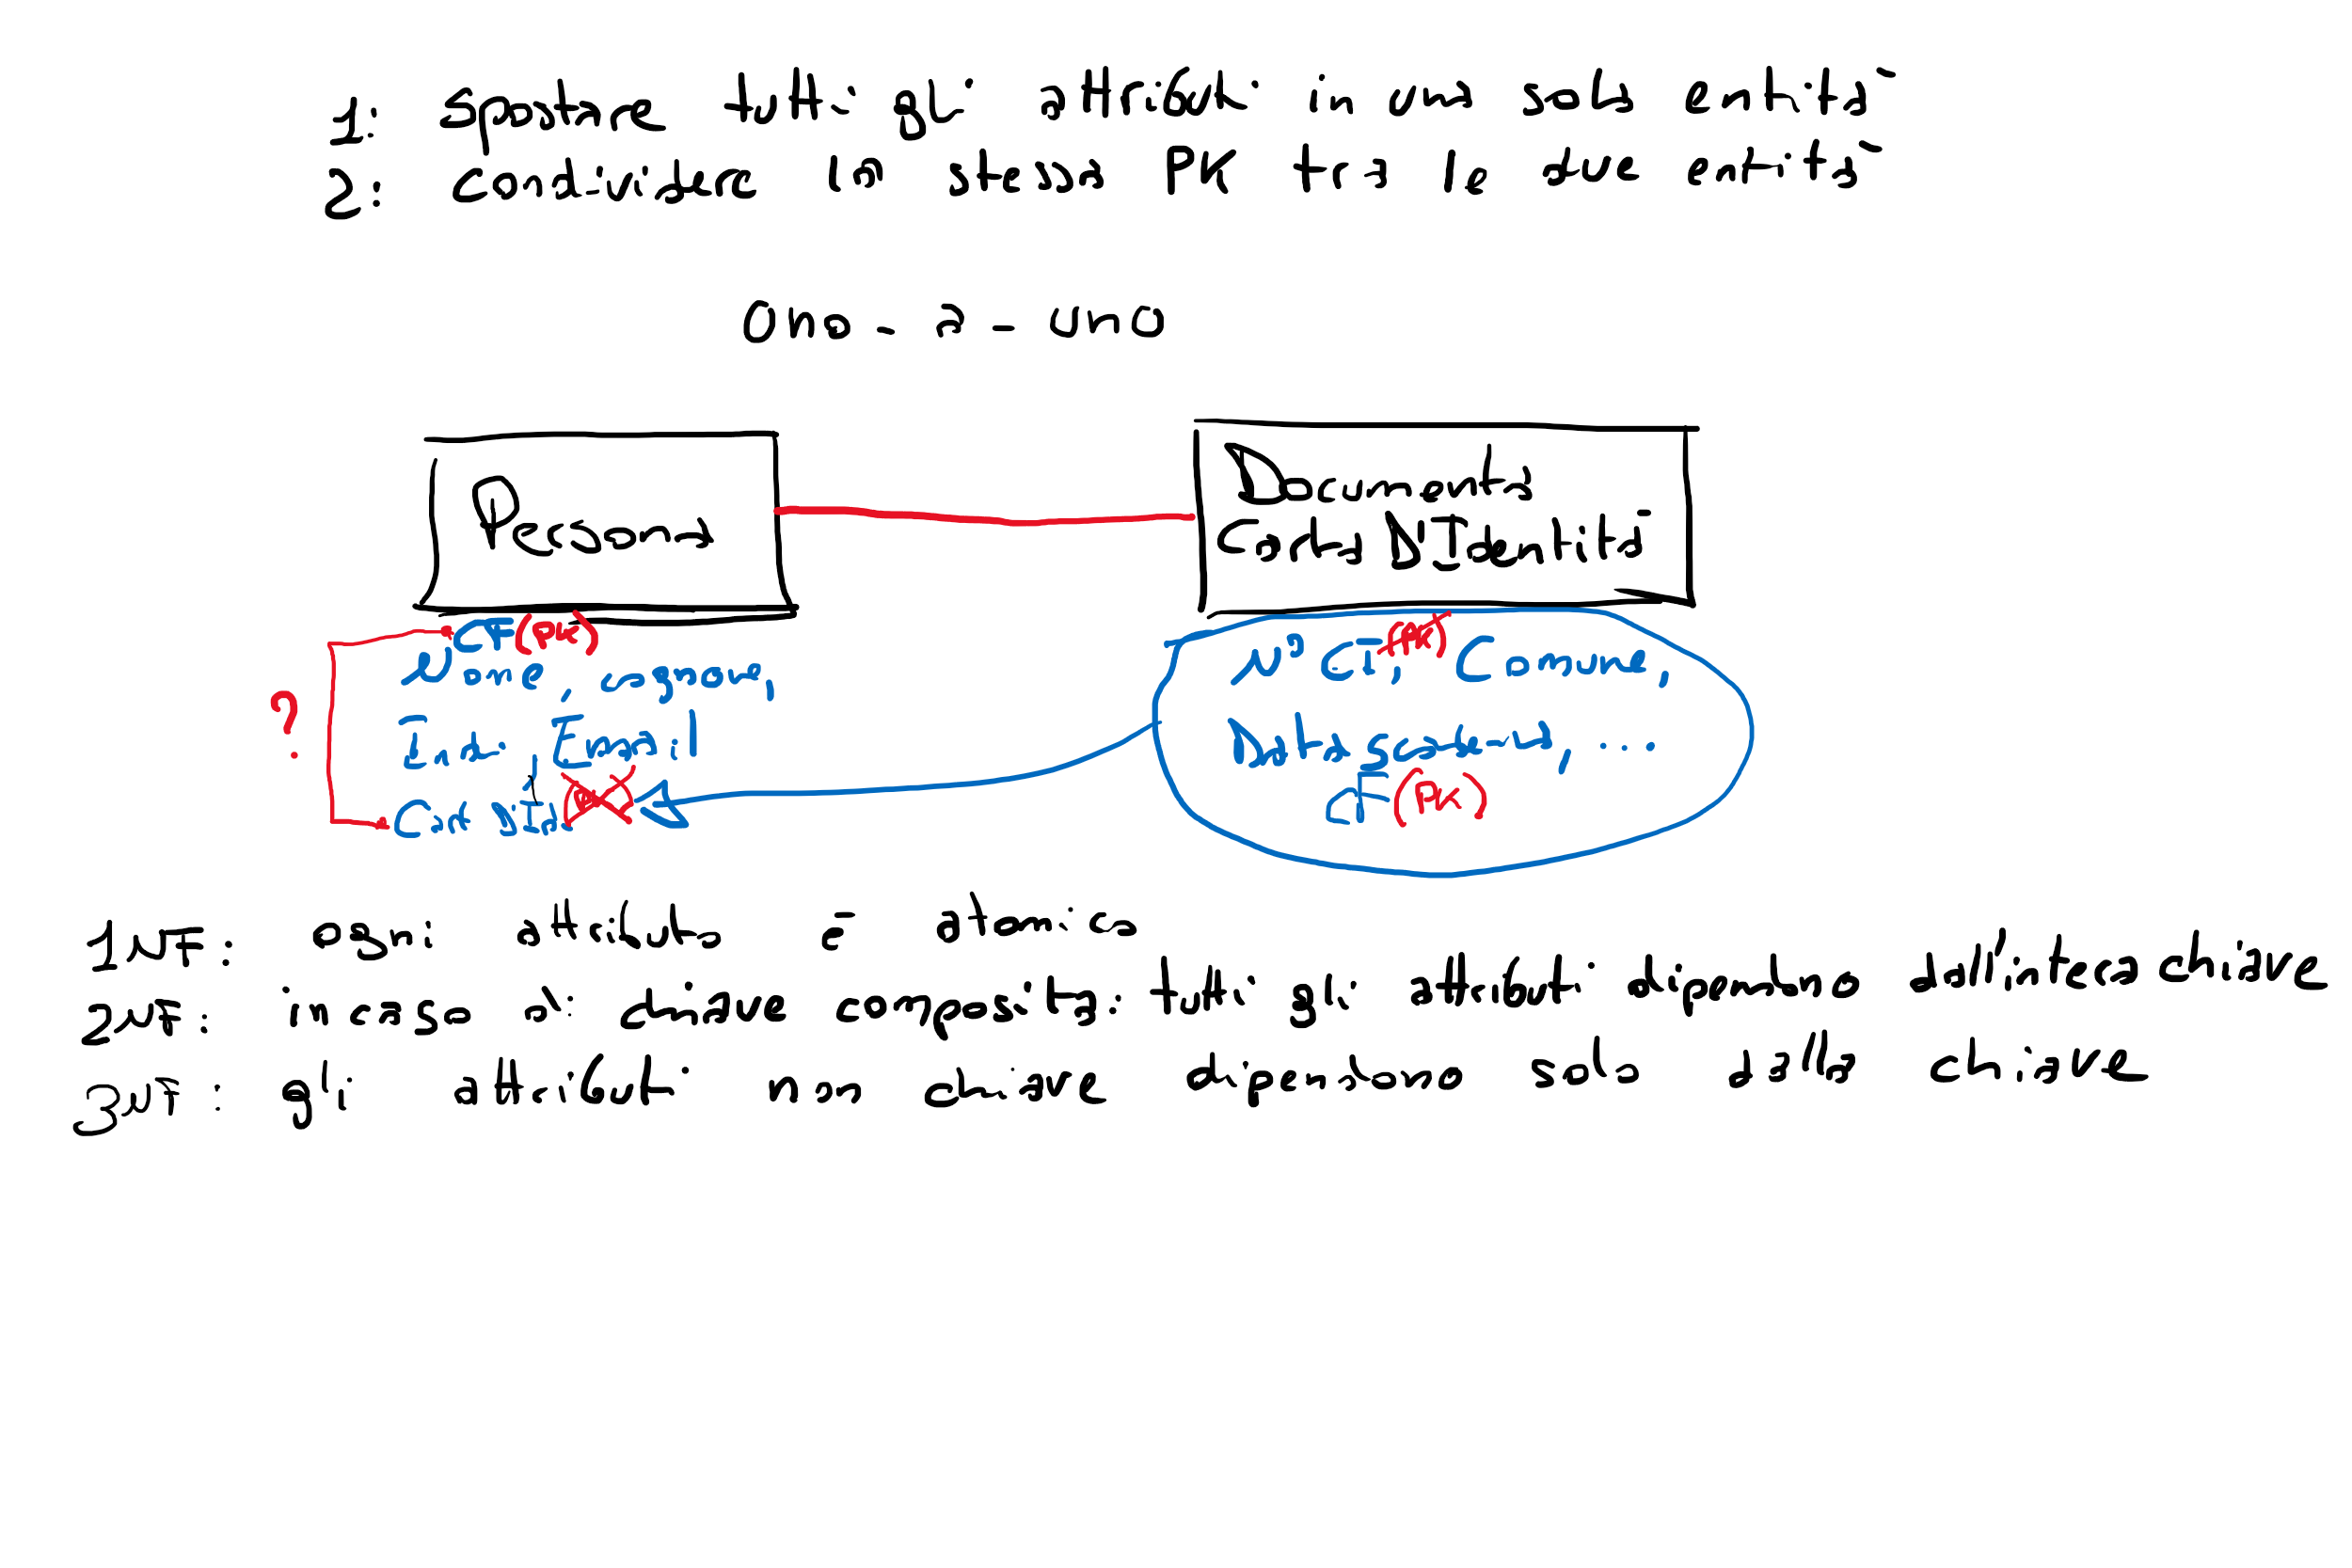 1: spostare tutti gli attributi in una sola entità
2: condividere la stessa PK tra le due entità
Uno - a - uno
Persona
Documento
Carta D'Identità
CF (PK)
Nome, cognome,
Ind., Email
?
N° CI, (PK) Comune,
Data scadenza, ...
CF (PK)
1NF: ogni attributo è atomico
2NF: in caso di chiave composita: tutti gli attributi dipendono dall'intera chiave
3NF: gli attributi non chiave dipendono solo dalla chiave